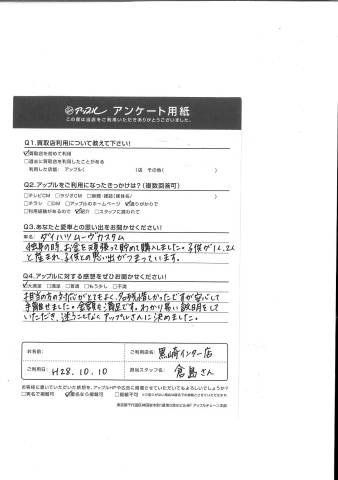 アップル アンケート用紙
この度は当店をご利用いただきありがとうございました。
Q1.買取店利用について教えて下さい！
☑買取店を初めて利用
□過去に買取店を利用したことがある
利用した店舗：アップル（ 店 その他（ ）
Q2.アップルをご利用になったきっかけは？（複数回答可）
□テレビCM □ラジオCM □新聞・雑誌（媒体名/ ）
□チラシ □DM □アップルのホームページ ☑通りがかりで
□利用経験があるので ☑紹介 □スタッフに誘われて
Q3.あなたと愛車との思い出をお聞かせください！
車名：ダイハツ ムーヴカスタム
独身の時、お金を頑張って貯めて購入しました。子供が1人、2人
と産まれ、子供との思い出がつまっています。
Q4.アップルに対する感想をぜひお聞かせください！
☑大満足 □満足 □普通 □もう少し □不満
担当の方の対応がとてもよく
安心して
手離せました。金額も満足です。わかり易い説明をして
いただき、迷うことなくアップルさんに決めました。
お名前：
ご利用店名：黒崎インター店
ご利用日：H28.10.10
担当スタッフ名：倉島さん
お客様に書いていただいた感想を、アップルHPや広告に掲載させていただいてもよろしいでしょうか？
□実名で掲載可 ☑匿名なら掲載可 □掲載不可